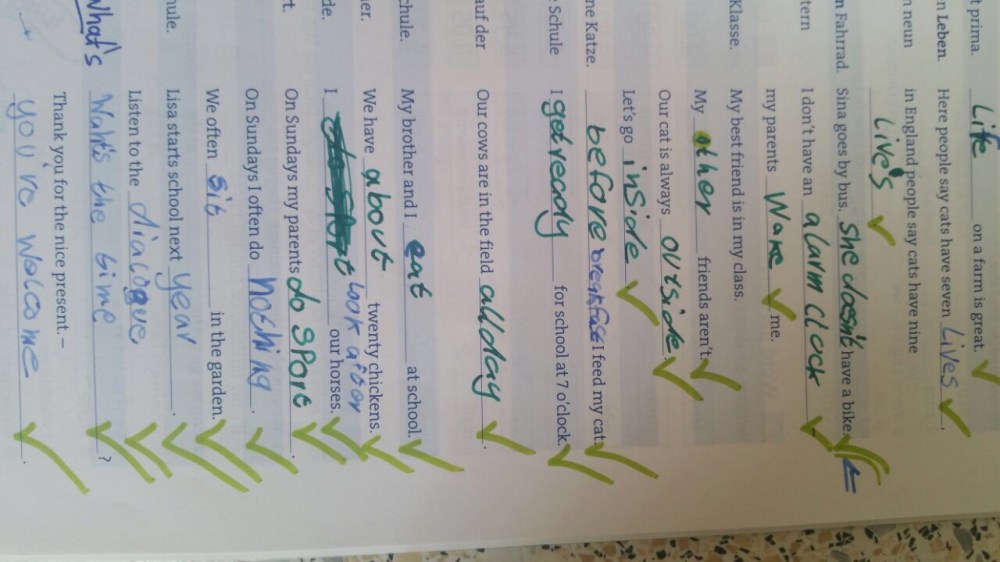 t prima. Life on a farm is great.
n Leben. Here people say cats have seven Lives.
n neun in England people say cats have nine
Live's
n Fahrrad. Sina goes by bus. She doesn't have a bike.
tern I don't have an alarm clock
my parents Wake me.
Klasse. My best friend is in my class.
My other friends aren't.
Our cat is always outside.
Let's go inside
ne Katze. before breakfast I feed my cat.
e Schule I get ready for school at 7 o'clock.
auf der Our cows are in the field all day.
chule. My brother and I eat at school.
ner. We have about twenty chickens.
de. I look after our horses.
rt. On Sundays my parents do sport.
On Sundays I often do nothing.
We often sit in the garden.
hule. Lisa starts school next year.
Listen to the dialogue
What's Waht's the time?
Thank you for the nice present. –
you're welcome.